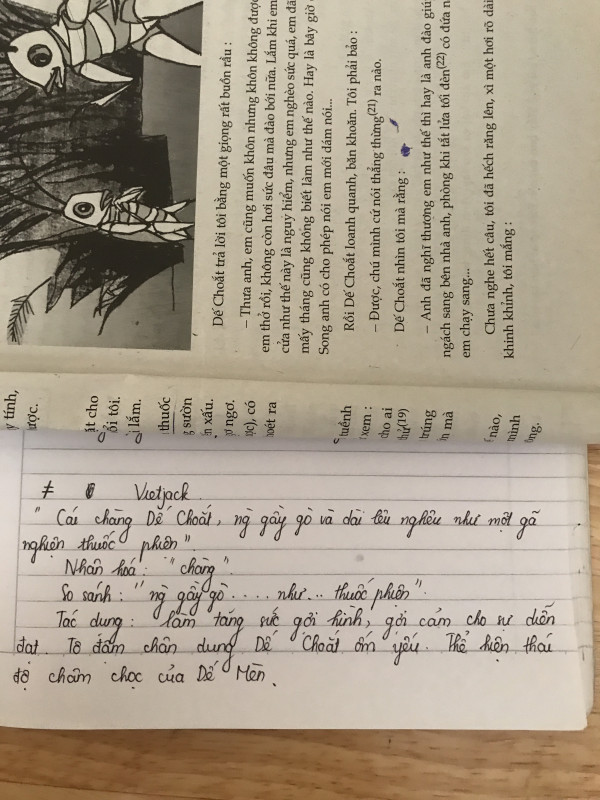 Dế Choắt trả lời tôi bằng một giọng rất buồn rầu :
– Thưa anh, em cũng muốn khôn nhưng khôn không được
em thở rồi, không còn hơi sức đâu mà đào bới nữa. Lắm khi em
cửa như thế này là nguy hiểm, nhưng em nghèo sức quá, em đã
mấy tháng cũng không biết làm như thế nào. Hay là bây giờ
Song anh có cho phép nói em mới dám nói...
Rồi Dế Choắt loanh quanh, băn khoăn. Tôi phải bảo :
– Được, chú mình cứ nói thẳng thừng(21) ra nào.
Dế Choắt nhìn tôi mà rằng :
– Anh đã nghĩ thương em như thế thì hay là anh đào giúp
ngách sang bên nhà anh, phòng khi tắt lửa tối đèn(22) có đứa
em chạy sang...
Chưa nghe hết câu, tôi đã hếch răng lên, xì một hơi rõ dài
khinh khỉnh, tôi mắng :
y tính,
ược.
ặt cho
ôi tôi.
i lắm.
thuốc
g sườn
n xấu.
ợ ngơ.
có
oét ra
tuềnh
xem :
cho ai
(19)
trúng
n mà
nào,
mình
ông.
≠ Vietjack
" Cái chàng Dế Choắt, ng` gầy gò và dài lêu nghêu như một gã
nghiện thuốc phiện"
Nhân hoá : " chàng "
So sánh : " ng` gầy gò .... như .. thuốc phiện".
Tác dụng : Làm tăng sức gợi hình, gợi cảm cho sự diễn
đạt. Tô đậm chân dung Dế Choắt ốm yếu. Thể hiện thái
độ châm chọc của Dế Mèn.